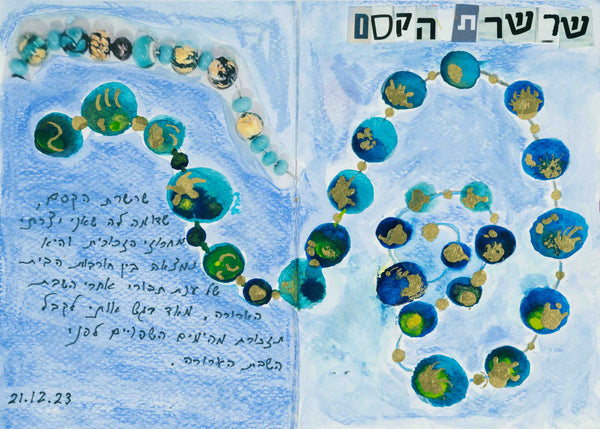 שרשרת הקסם
שרשרת הקסם,
שדומה לה שאני יצרתי
מחרוזי הזכוכית והיא
נמצאה בין חורבות הבית
של ענת תבורי אחרי השבת
הארורה, מאד רגש אותי לקבל
תזכורת מהימים השפויים לפני
השבת הארורה.
21.12.23